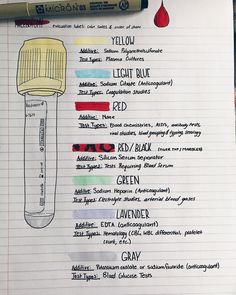 MICRON
Evacuation Tubes: Color Codes & order of draw
YELLOW
Additive: Sodium Polyanetholsulfonate
Test Types: Plasma Cultures
LIGHT BLUE
Additive: Sodium Citrate (Anticoagulant)
Test Types: Coagulation studies
RED
Additive: None
Test Types: Blood Chemistries, AIDS, Antibody
viral studies, blood grouping & typing, serology
RED/BLACK (TIGER TOP/MARBLED)
Additive: Silicon Serum Separator
Test Types: Tests Requiring Blood Serum
GREEN
Additive: Sodium Heparin (Anticoagulant)
Test Types: Electrolyte Studies, arterial blood gases
LAVENDER
Additive: EDTA (anticoagulant)
Test Types: Hematology (CBC, WBC differential, platelet
count, etc.)
GRAY
Additive: Potassium oxalate or sodium fluoride (anticoagulant)
Test Types: Blood Glucose Tests